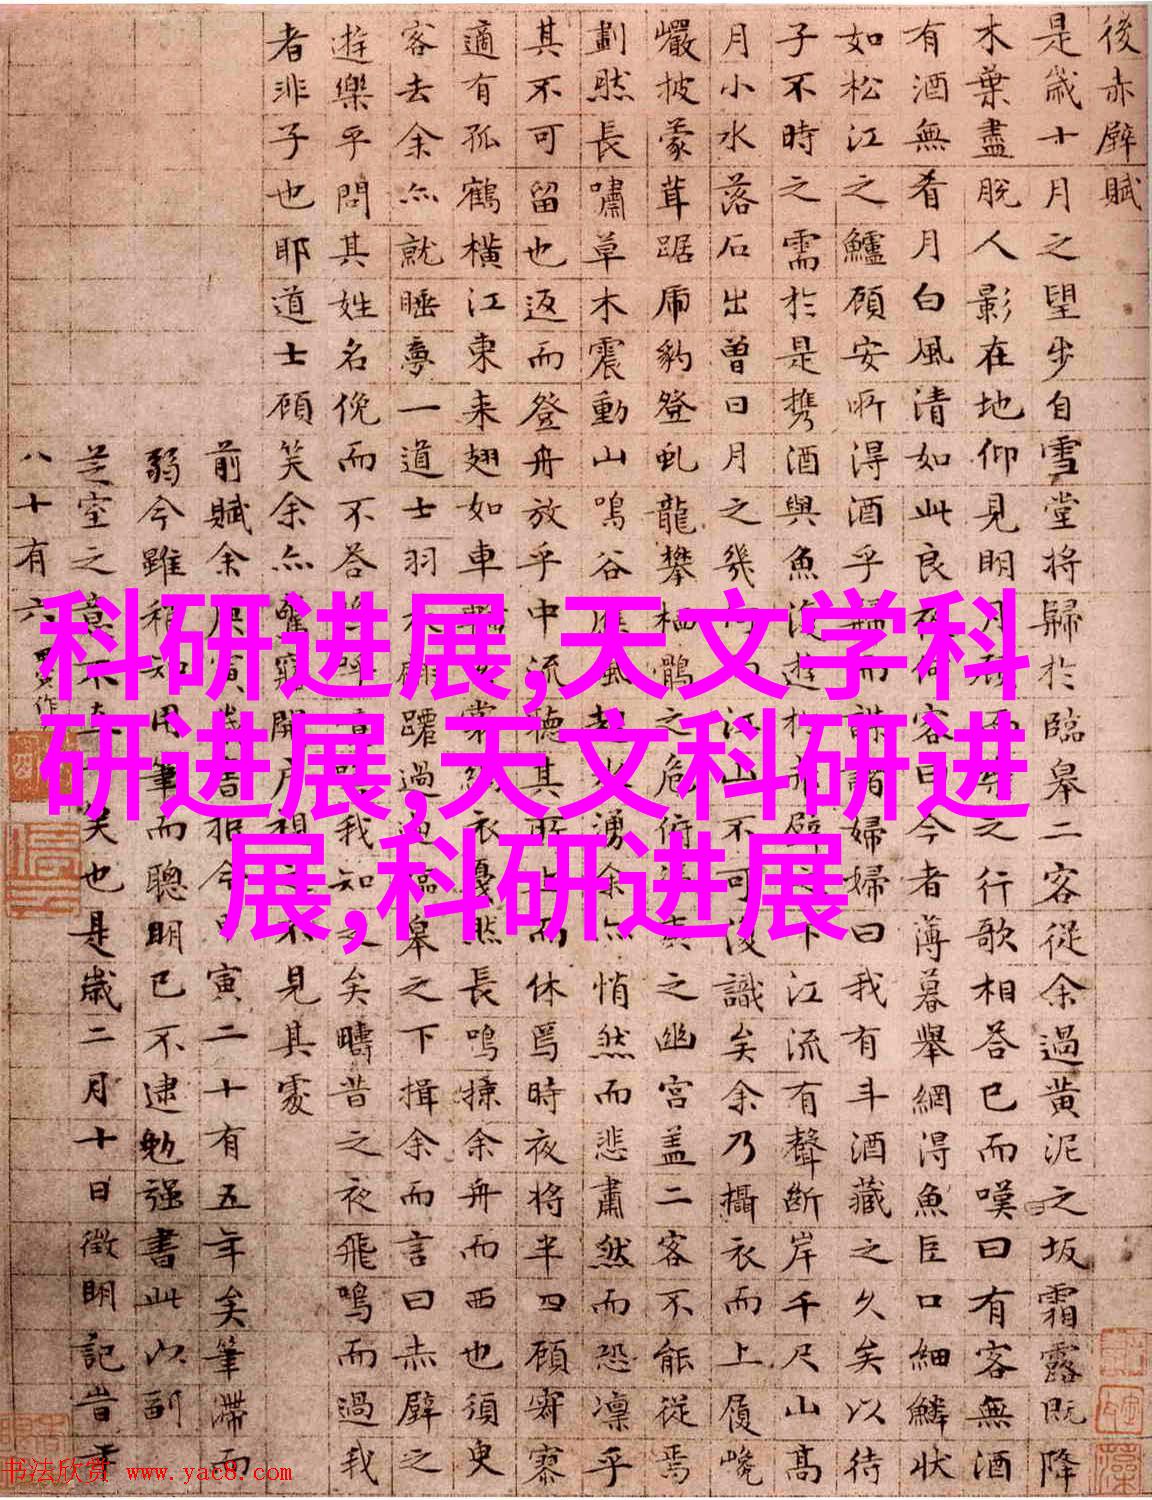 後赤壁賦
是歲十月之望步自雪堂將歸於臨皋二客從余過黃泥之坂霜露既降
木葉盡脫人影在地仰見明月顧而樂之行歌相荅已而嘆曰有客無酒
有酒無肴月白風清如此良夜何客曰今者薄暮舉網得魚巨口細鱗狀
如松江之鱸顧安所得酒乎歸而謀諸婦婦曰我有斗酒藏之久矣以待
子不時之需於是携酒與魚復遊於赤壁之下江流有聲斷岸千尺山高
月小水落石出曾日月之幾何而江山不可復識矣余乃攝衣而上履巉
巖披蒙茸踞虎豹登虬龍攀栖鶻之危俯馮夷之幽宮盖二客不能從焉
劃然長嘯草木震動山鳴谷應風起水湧余亦悄然而悲肅然而恐凛乎
其不可留也返而登舟放乎中流聽其所止而休焉時夜將半四顧寂寥
適有孤鶴橫江東来翅如車輪玄裳縞衣戛然長鳴掠余舟而西也須臾
客去余亦就睡夢一道士羽衣翩躚過臨皋之下揖余而言曰赤壁之
遊樂乎問其姓名俛而不荅嗚呼噫嘻我知之矣疇昔之夜飛鳴而過我
者非子也耶道士顧笑余亦驚寤開戶視之不見其處
前賦余庚寅歲書抵今甲寅二十有五年矣筆滯而
弱今雖稍知用筆而聰明已不逮勉强書此以副
芝室之意不直一笑也是歲二月十日徵明記
八十有六
科研进展,天文学科
研进展,天文科研进
展,科研进展
书法欣赏 www.yac8.com